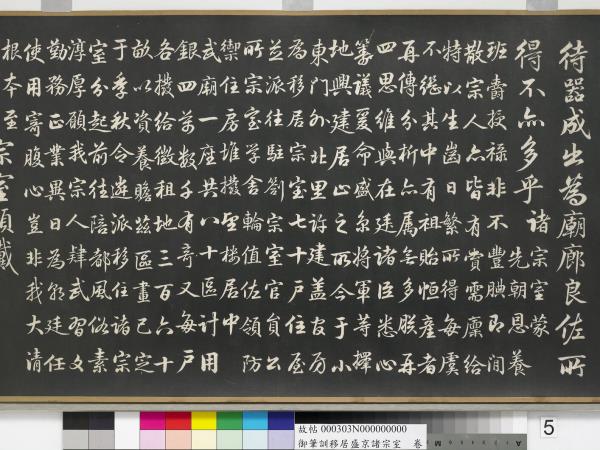 待器成出為廟廊良佐所
得不亦多乎諸宗室蒙
先朝恩養
班爵授祿非不豐腆即閒
散宗人皆有賞需廩給
特以生齒日繁所得每虞
不繼其中有祖貽恒產者
再傳分析亦屬無多朕再
四思維與廷諸臣悉心
籌議爰命盛京將軍等擇
地興建居之所今于小
東門外北里許建蓋房
為移居宗室七十戶住屋
並派往駐劄宗室官員公
所宗室學舍輪值佐領防
禦住房堆撥望樓居中
武廟一座共八十區計用
銀四萬數千有奇又每戶
各撥給徵租地三百六十
故以資養贍茲區畫已定
于季秋令派移住諸宗
室分起前往陪都風俗素
淳厚願我宗人肆武習文
勤務正業異日為任
使用寄腹心豈非我大清
根本至宗室
故帖 000303N000000000
御筆訓移居盛京諸宗室 卷
5